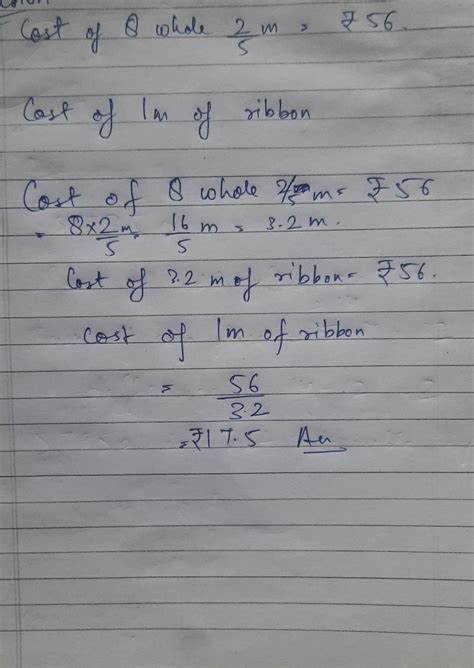 Cost of 8 whole 2/5 m = ₹56.
Cost of 1m of ribbon
Cost of 8 whole 2/5 m = ₹56
= 8×2/5 m = 16/5 m = 3.2 m.
Cost of 3.2 m of ribbon = ₹56.
Cost of 1m of ribbon
= 56/3.2
= ₹17.5 An